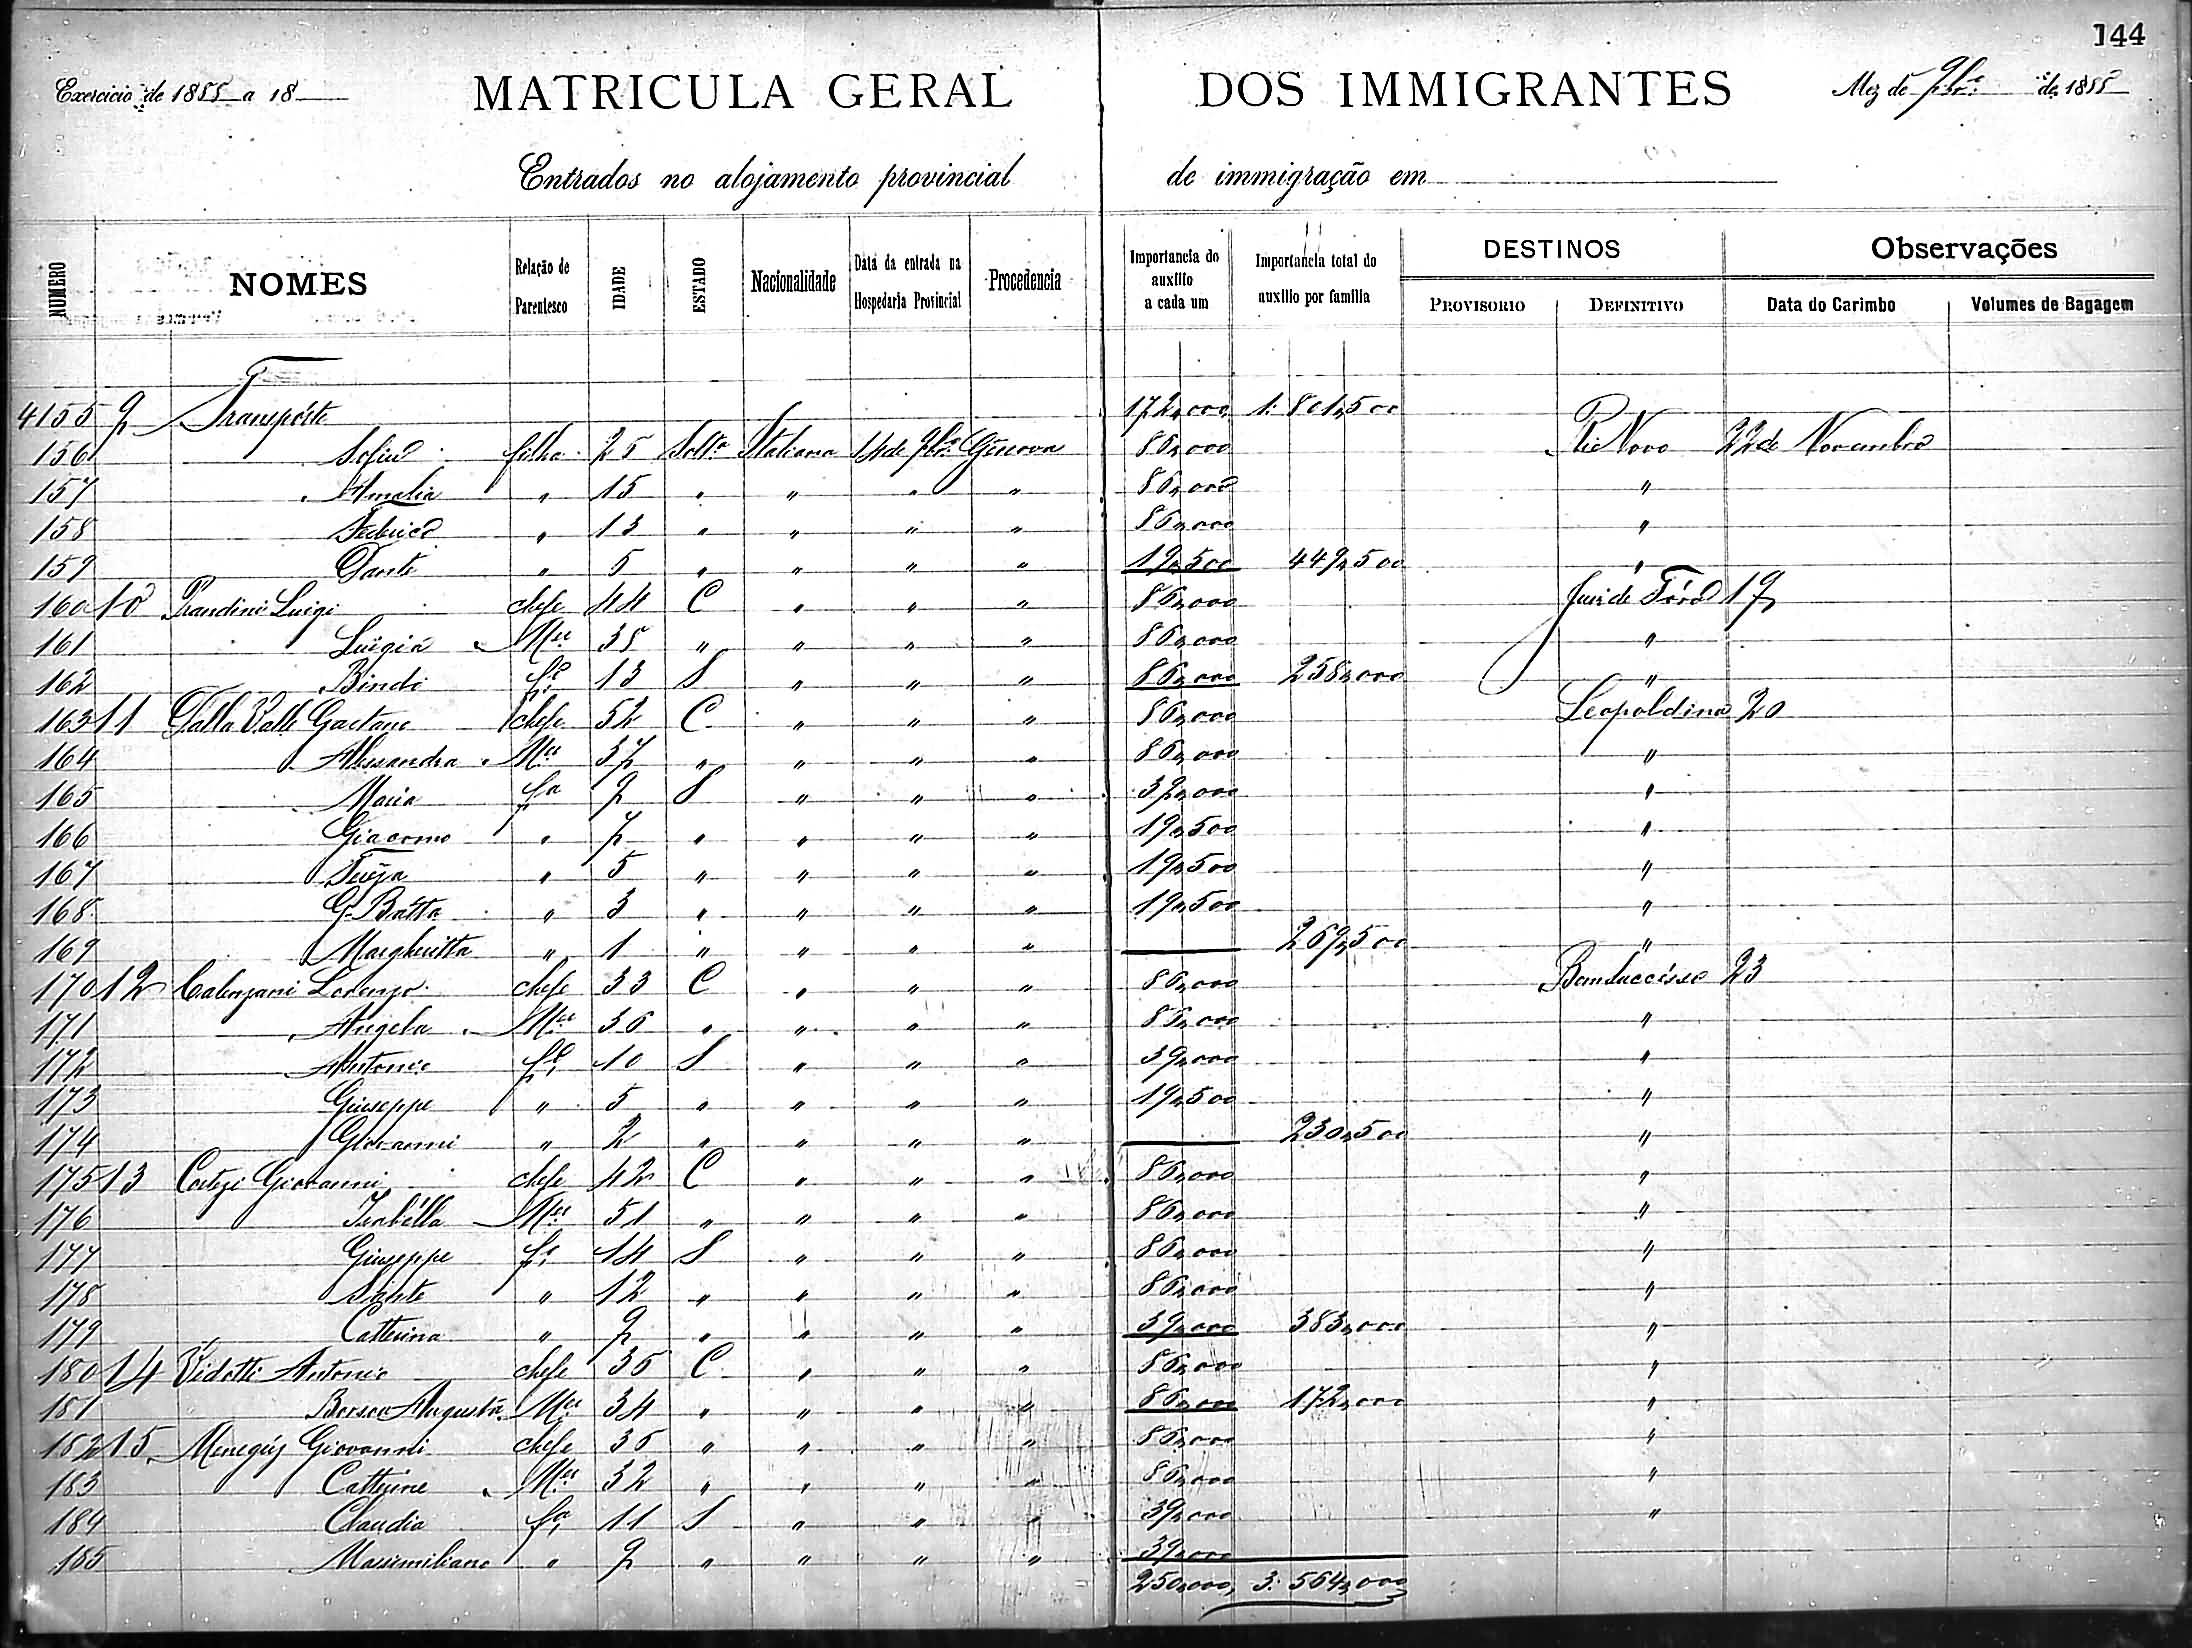 144
Exercicio de 1888 a 18
MATRICULA GERAL DOS IMMIGRANTES
Mez de 9br.º de 1888
Entrados no alojamento provincial de immigração em
NUMERO NOMES Relação de Parentesco IDADE ESTADO Nacionalidade Data da entrada na Hospedaria Provincial Procedencia Importancia do auxilio a cada um Importancia total do auxilio por familia DESTINOS PROVISORIO DEFINITIVO Observações Data do Carimbo Volumes de Bagagem
4155 9 Transporte 172,000 1:801,500
156 filha 25 Solt.ª Italiana 14 de 9br.º Genova 86,000 Rio Novo 22 de Novembro
157 Amalia " 15 " " " " 86,000 "
158 Federico " 13 " " " " 86,000 "
159 Dante " 5 " " " " 19,500 449,500 "
160 10 Prandini Luigi chefe 44 C " " " 86,000 Juiz de Fóra 19
161 Luigia M.er 38 " " " " 86,000 "
162 Bindi f.º 13 S " " " 86,000 258,000 "
163 11 Dalla Valle Gaetano chefe 52 C " " " 86,000 Leopoldina 20
164 Alessandra M.er 37 " " " " 86,000 "
165 Maria f.a 9 S " " " 39,000 "
166 Giacomo " 7 " " " " 19,500 "
167 " 5 " " " " 19,500 "
168 G. Batta " 3 " " " " 19,500 "
169 Margheritta " 1 " " " " 269,500 "
170 12 Calenzani Lorenzo chefe 33 C " " " 86,000 23
171 Angela M.er 36 " " " " 86,000 "
172 Antonio f.º 10 S " " " 39,000 "
173 Giuseppe " 5 " " " " 19,500 "
174 Giovanni " 2 " " " " 230,500 "
175 13 Cortezi Giovanni chefe 42 C " " " 86,000 "
176 Isabella M.er 51 " " " " 86,000 "
177 Giuseppe f.º 14 S " " " 86,000 "
178 Sante " 12 " " " " 86,000 "
179 Catterina " 9 " " " " 39,000 383,000 "
180 14 Vidotti Antonio chefe 36 C " " " 86,000 "
181 Augusta M.er 34 " " " " 86,000 172,000 "
182 15 Menegúz Giovanni chefe 36 " " " " 86,000 "
183 Catterine M.er 32 " " " " 86,000 "
184 Claudia f.a 11 S " " " 39,000 "
185 Massimiliano " 9 " " " " 39,000
250,000, 3:564,000